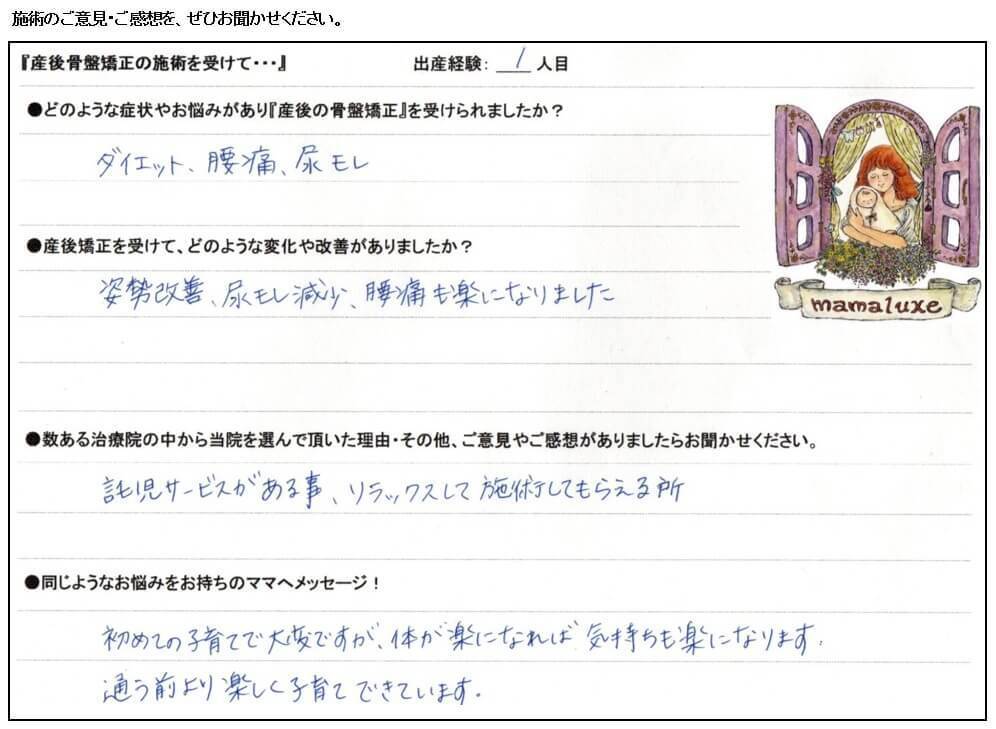 施術のご意見・ご感想を、ぜひお聞かせください。
『産後骨盤矯正の施術を受けて・・・』 出産経験: 1 人目
●どのような症状やお悩みがあり『産後の骨盤矯正』を受けられましたか？
ダイエット、腰痛、尿モレ
●産後矯正を受けて、どのような変化や改善がありましたか？
姿勢改善、尿モレ減少、腰痛も楽になりました
mamaluxe
●数ある治療院の中から当院を選んで頂いた理由・その他、ご意見やご感想がありましたらお聞かせください。
託児サービスがある事、リラックスして施術してもらえる所
●同じようなお悩みをお持ちのママへメッセージ！
初めての子育てで大変ですが、体が楽になれば気持ちも楽になります.
通う前より楽しく子育てできています.